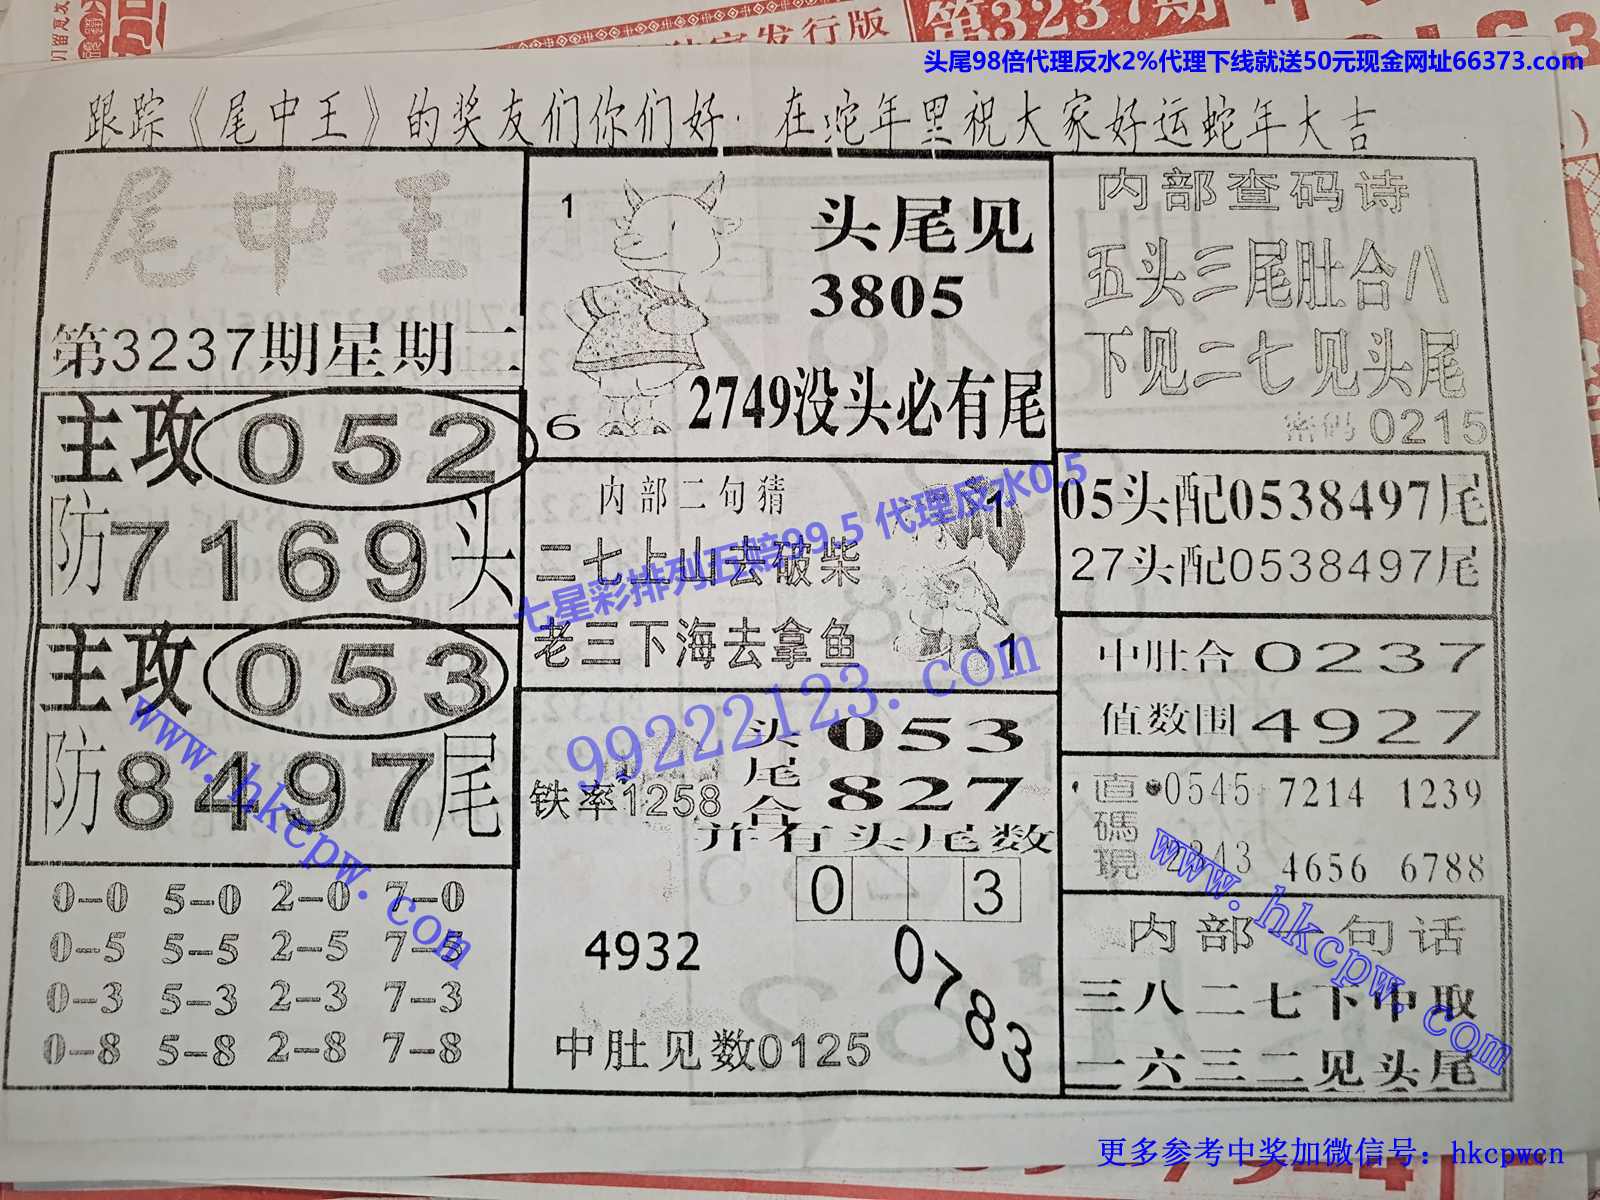 独家发行版
第3237期
头尾98倍代理反水2%代理下线就送50元现金网址66373.com
跟踪《尾中王》的奖友们你们好.在蛇年里祝大家好运蛇年大吉
尾中王
第3237期星期二
主攻 052
防7169头
主攻 053
防8497尾
0–0 5–0 2–0 7–0
0–5 5–5 2–5 7–5
0–3 5–3 2–3 7–3
0–8 5–8 2–8 7–8
1
头尾见
3805
6
2749没头必有尾
内部二句猜
1
二七上山去破柴
老三下海去拿鱼
1
七星彩排列五赔99.5 代理反水0.5
99222123.com
头尾合 053
827
铁率1258
并有头尾数
0 3
4932
0783
中肚见数0125
内部查码诗
五头三尾肚合八
下见二七见头尾
密码 0215
05头配0538497尾
27头配0538497尾
中肚合 0237
值数围 4927
直碼現
0545 7214 1239
4656 6788
内部一句话
三八二七下中取
一六三二见头尾
www.hkcpw.com
www.hkcpw.com
更多参考中奖加微信号：hkcpwcn